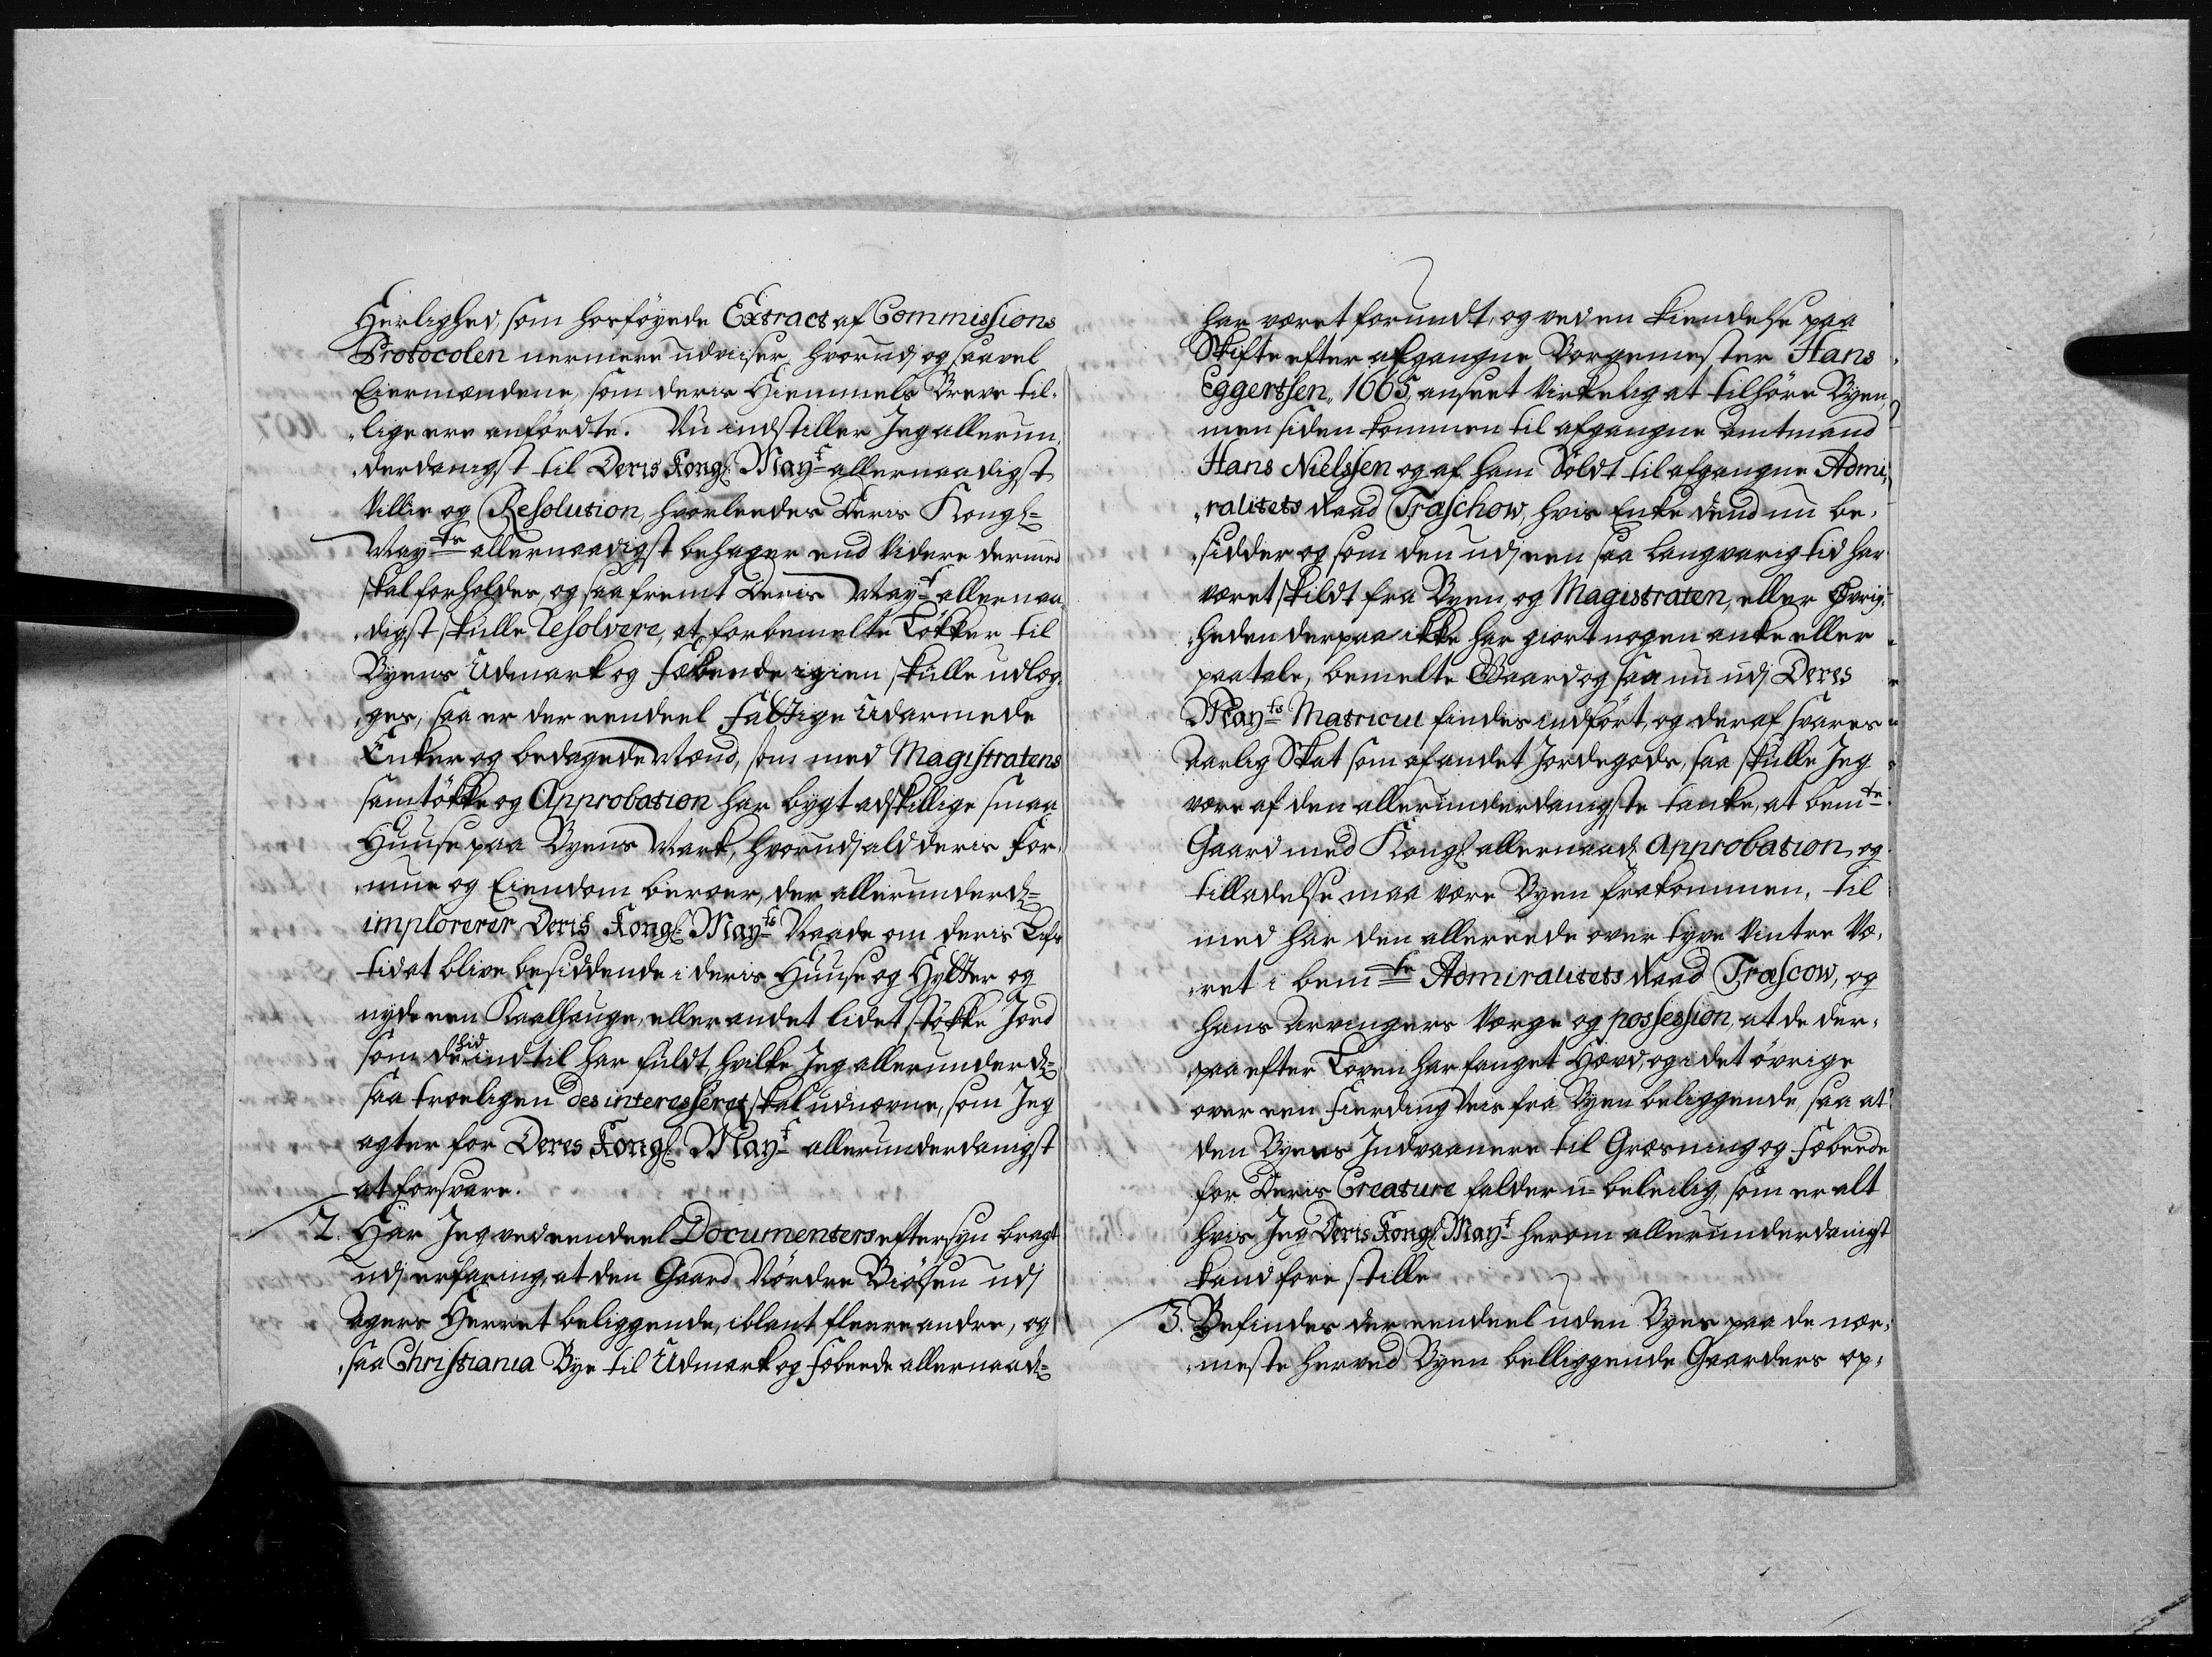 Herlighed, som hosföyede Extract af Commissions
Protocolen nermere udviiser, hvorudj og saavel
Eiermændene, som deris Hiemmels Breve til-
lige ere anfördte. Nu indstiller Jeg allerun-
derdanigst til Deris Kongl: Mayt: allernaadigst
Villie og Resolution, hvorleedes Deris Kongl:
Mayts: allernaadigst behager end Videre dermed
skal forholdes, og saafremt Deris Mayt: allernaa-
digst skulle Resolvere, at forbemelte Lökker til
Byens Udmark og Fæbeede igien skulle udlæg-
ges, saa er der eendeel Fattige Udarmede
Enker og bedagede Mænd, som med Magistratens
samtökke og Approbation har bygt adskillige smaa
Huuse paa Byens Mark, hvorudj ald deris For-
mue og Eiendom beroer, der allerunderd:
implorerer Deris Kongl: Mayts Naade om deris Lifs
tid at blive besiddende i deris Huuse og Hytter og
nyde een Kaalhauge, eller andet lidet stökke Jord
som der hidindtil har fuldt, hvilke Jeg allerunderd:
saa troeligen des interesseret skal udnævne, som Jeg
agter for Deres Kongl: Mayt: allerunderdanigst
at forsvare.
2. Har Jeg ved eendeel Documenters eftersyn bragt
udj erfaring, at den Gaard Nördre Biölsen udj
Agers Herret beliggende, iblant fleere andre, og
saa Christiania Bye til Udmark og Fæbeede allernaad:
har været forundt, og ved en Kiendelse paa
Skifte efter afgangne Borgemester Hans
Eggertsen, 1665, anseet Virkelig at tilhöre Byen,
men siden kommen til afgangne Amtmand
Hans Nielssen og af ham Soldt til afgangne Admi-
ralitets Raad Træschow, hvis Enke dend nu be-
sidder og som den udj een saa langvarig tid har
været skildt fra Byen, og Magistraten, eller Övrig-
heden derpaa ikke har giort nogen anke eller
paatale, bemelte Gaard og saa nu udj Deres
Mayts Matricul findes indfört, og deraf svares
Aarlig Skat som af andet Jordegods, saa skulle Jeg
være af den allerunderdanigste tanke, at bemte
Gaard med Kongl: allernaad: Approbation, og
tilladelse maa være Byen frakommen, til
med har den allereede over tyve Vintre Væ-
ret i bemte Admiralitets Raad Træscow, og
hans Arvingers Værge og possession, at de der-
paa efter Loven har fanget Hævd, og i det övrige
over een Fierding Veis fra Byen beliggende saa at
den Byens Indvaanere til Græsning og Fæbeede
for Deris Creature falder u-beleilig, som er alt
hvis Jeg Deris Kongl: Mayt: herom allerunderdanigst
kand forestille
3. Befindes der eendeel uden Byes paa de nær-
meste herved Byen belliggende Gaarders op-